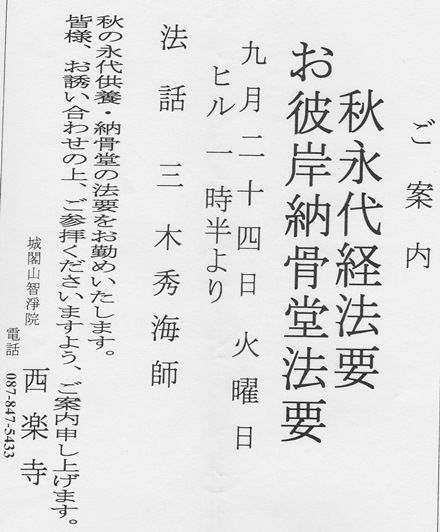 ご案内
秋永代経法要
お彼岸納骨堂法要
九月二十四日 火曜日
ヒル一時半より
法話 三木秀海師
秋の永代供養・納骨堂の法要をお勤めいたします。
皆様、お誘い合わせの上、ご参拝くださいますよう、ご案内申し上げます。
城閣山智淨院 西楽寺
電話 087-847-5433